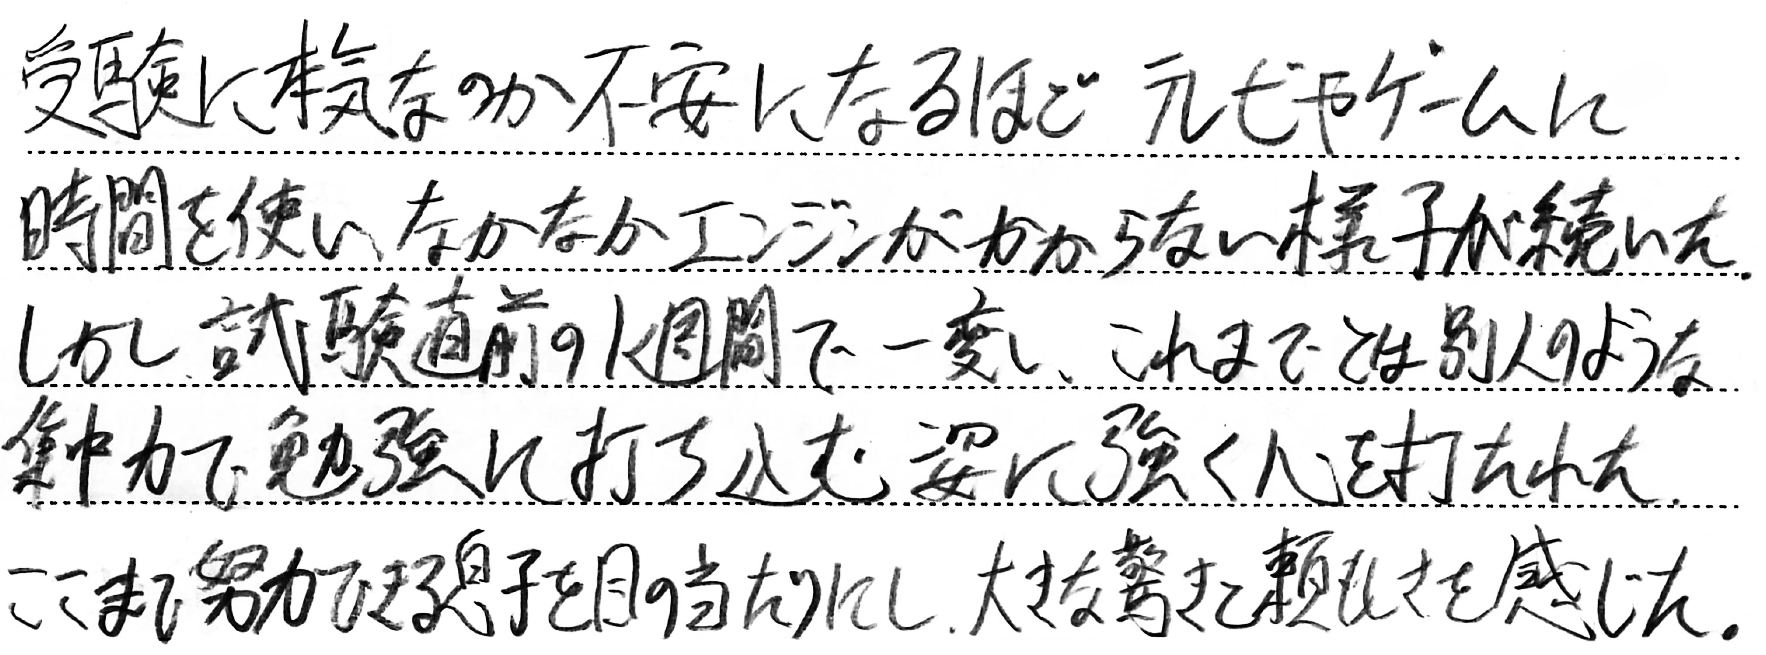 受験に本気なのか不安になるほど テレビやゲームに
時間を使い、なかなかエンジンがかからない様子が続いた。
しかし、試験直前の1週間で一変し、これまでとは別人のような
集中力で勉強に打ち込む姿に強く心を打たれた。
ここまで努力できる息子を目の当たりにし、大きな驚きと頼もしさを感じた。